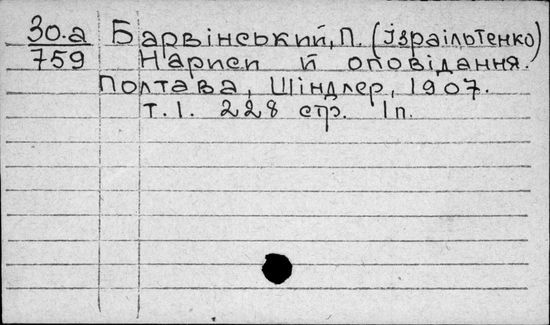 30.а Барвінський, П. (Ізраільтенко)
759 Нариси й оповідання.
Полтава, Шіндлер, 1907.
т. 1. 228 стр. 1 п.